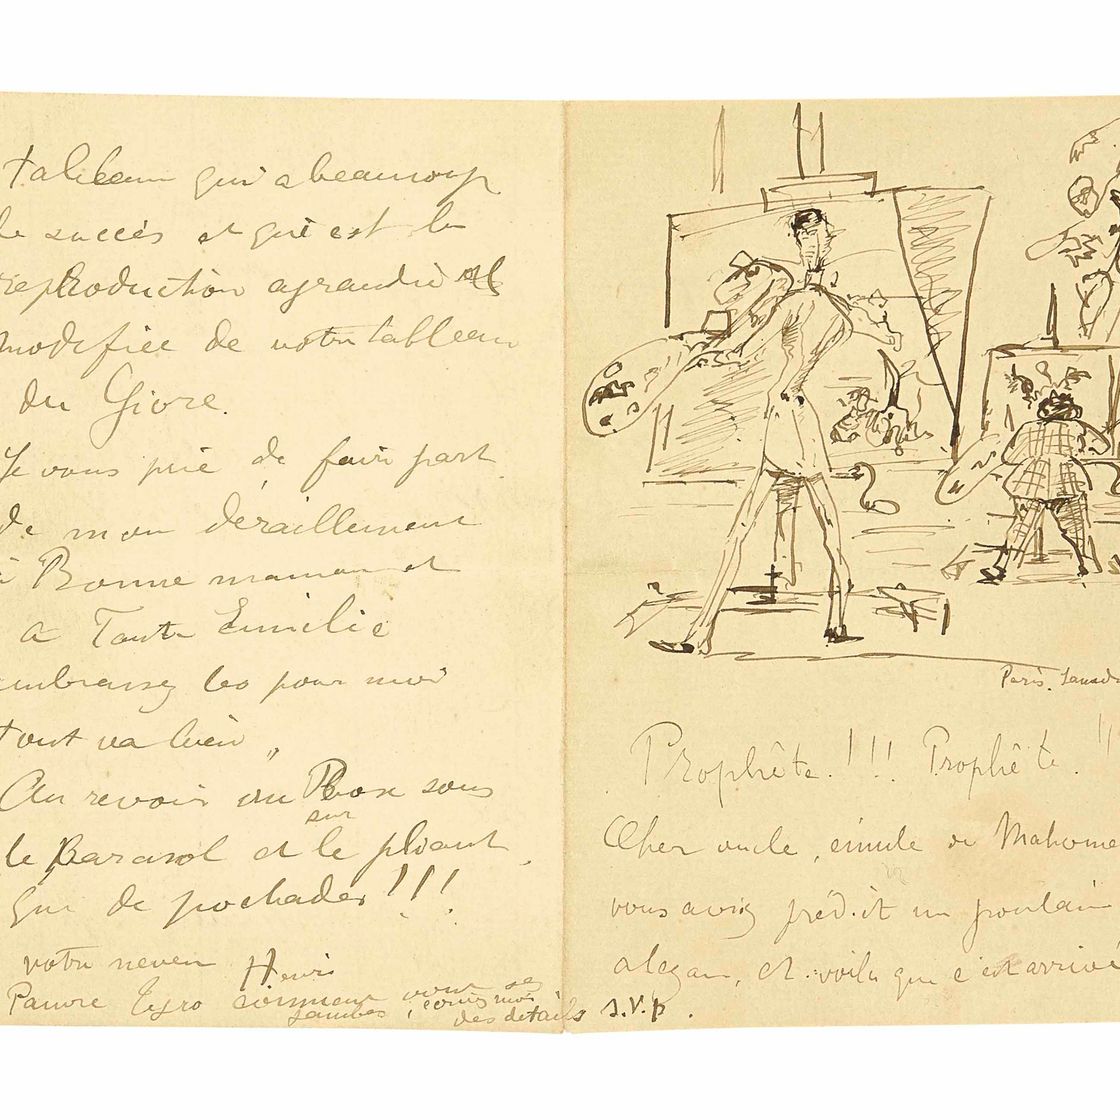 tableau qui a beaucoup
de succès et qui est la
reproduction agrandie et
modifiée de votre tableau
du Givre.
Je vous prie de faire part
de mon déraillement
à Bonne maman et
à Tante Emilie
embrassez les pour moi
tout va bien
Au revoir un sous
sur
le parasol et le pliant
que de pochades!!!
votre neveu Henri
Pauvre Tyro comment vont ses
jambes, écrivez moi
des détails s.v.p.
Paris.
Prophète!!! Prophète!!
Cher oncle, émule de Mahome
vous aviez prédit un poulain
alezan, et voilà que c'est arrivé